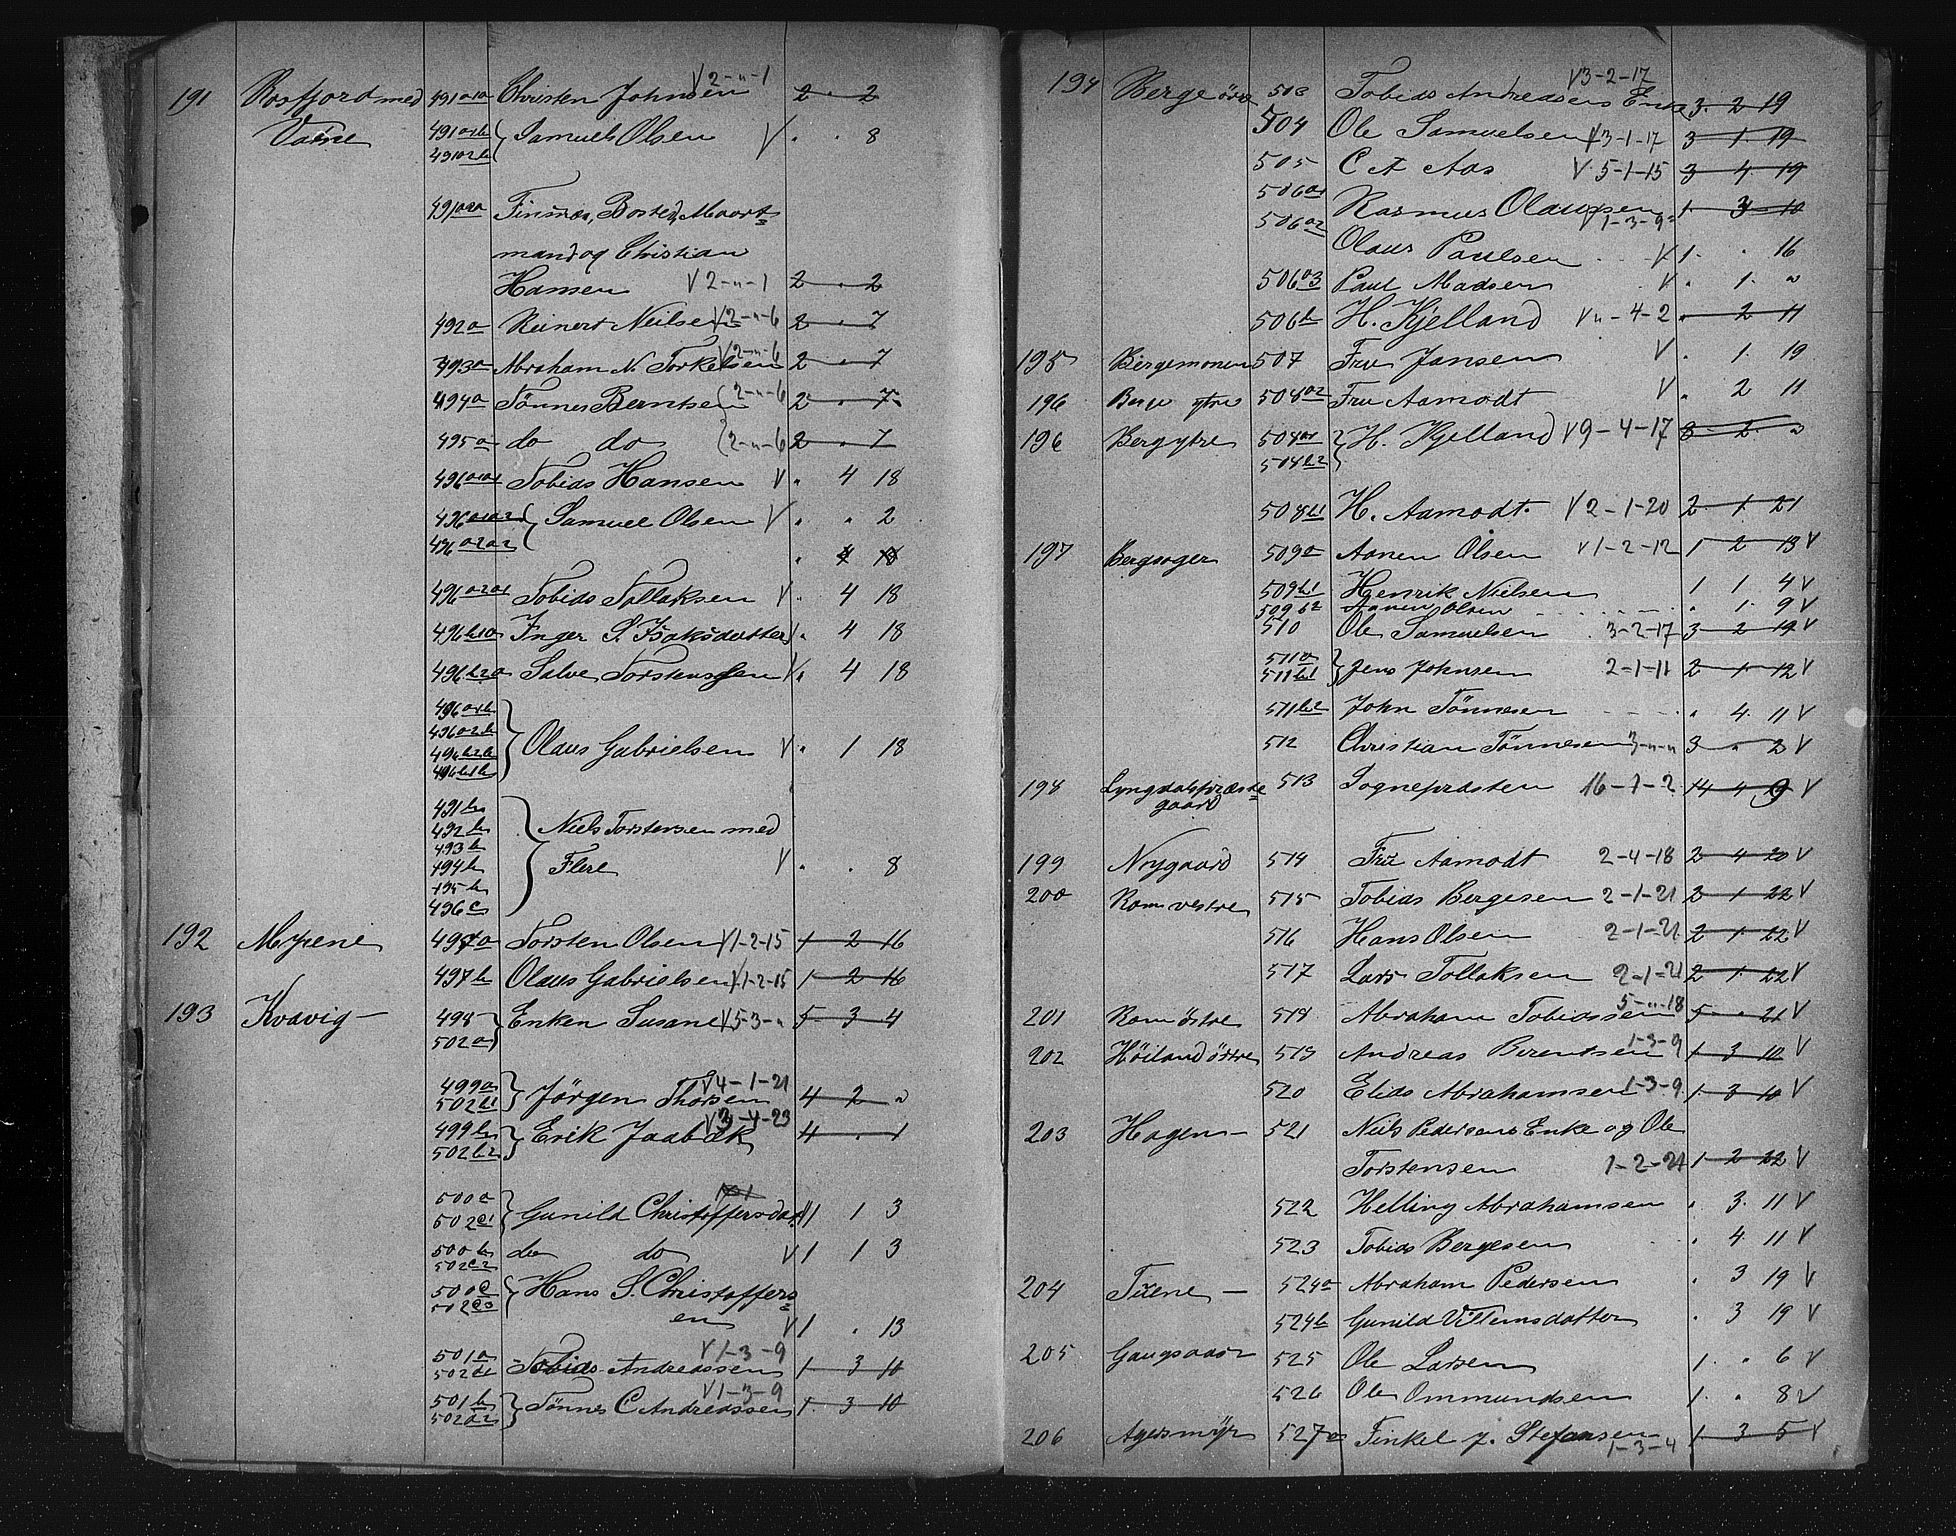 191 Rosfjord med 491a1a Christen Johnsen V2-"-1 2 " 2
Vatne 491a1b Samuel Olsen V " " 8
491a2b
491a2a Finsnæs, Bosted, Maort=
mand og Christian
Hansen V2-"-1 2 " 2
492a Reinert Neilsen V2-"-6 2 " 7
493a Abraham N Torkelsen V2-"-6 2 " 7
494a Tønnes Berntsen 2-"-6 2 " 7
495a do do 2-"-6 2 " 7
496a1a1 Tobias Hansen V " 4 18
496a1a2 Samuel Olsen V " " 2
496a2a2 " 4 18
496a2a1 Tobias Tollaksen V " 4 18
496b1a Inger S. Isaksdatter V " 4 18
496b2a Salve Torstensen V " 4 18
496a1b
496a2b Olaus Gabrielsen V " 1 18
496b2b
496b1b
491b
492b Niels Torstensen med
493b
494b Flere V " " 8
495b
496c
192 Myrene 497a Torsten Olsen V1-2-15 1 2 16
497b Olaus Gabrielsen V1-2-15 1 2 16
193 Kvavig 498 Enken Susane V5-3-" 5 3 4
502a
499a Jørgen Thorsen V4-1-21 4 2 "
502b1
499b Erik Jaabæk V3-4-23 4 " 1
502b2
500a
502c1 Gunild Christoffersdat V1 1 3
500b do do V1 1 3
502c2
500c Hans S. Christoffers=
502c3 en V1 " 13
501a Tobias Andreassen V1-3-9 1 3 10
502d1
501b Tønnes C Andreassen V1-3-9 1 3 10
502d2
194 Berge østre 503 Tobias Andreasens Enke V3-2-17 3 2 19
504 Ole Samuelsen V3-1-17 3 1 19
505 C A Aas V5-1-15 3 4 19
506a1 Rasmus Olaussen V1-3-9 1 3 10
506a2 Olaus Paulsen V1 " 16
506a3 Paul Madsen V " 1 "
506b H. Kjelland V"-4-2 " 2 11
195 Bergemonen 507 Fru Jansen V " 1 19
196 Berge ytre 508a2 Fru Aamodt V " 2 11
196 Berg ytre 508a1 H. Kjelland V9-4-17 8 2 "
508b2
508b1 H. Aamodt V2-1-20 2 1 21
197 Bergsager 509a Aanen Olsen V1-2-12 1 2 13 V
509b1 Henrik Nielsen 1 1 4 V
509b2 Aanen Olsen " 1 9 V
510 Ole Samuelsen 3-2-17 3 2 19 V
511a Jens Johnsen 2-1-11 2 1 12 V
511b1
511b2 John Tønnesen " 4 11 V
512 Christian Tønnesen 3-"-" 3 " 2 V
198 Lyngdalspræste= 513 Sognepræsten 16-1-2 14 4 9 V
gaard
199 Nygaard 514 Fru Aamodt 2-4-18 2 4 20 V
200 Rom vestre 515 Tobias Bergesen 2-1-21 2 1 22 V
516 Hans Olsen 2-1-21 2 1 22 V
517 Lars Tollaksen 2-1-21 2 1 22 V
201 Rom østre 518 Abraham Tobiassen 5-"-18 5 " 21 V
202 Høiland østre 519 Andreas Berentsen 1-3-9 1 3 10 V
520 Elias Abrahamsen 1-3-9 1 3 10 V
203 Hagen 521 Niels Pedersens Enke og Ole
Torstensen 1-2-21 1 2 22 V
522 Helling Abrahamsen " 3 11 V
523 Tobias Bergesen " 4 11 V
204 Tuene 524a Abraham Pedersen " 3 19 V
524b Gunild Villumsdatter " 3 19 V
205 Gaupaas 525 Ole Larsen 1 " 6 V
526 Ole Ommundsen 1 " 8 V
206 Agersmyr 527a Finkel J. Stefansen 1-3-4 1 3 5 V